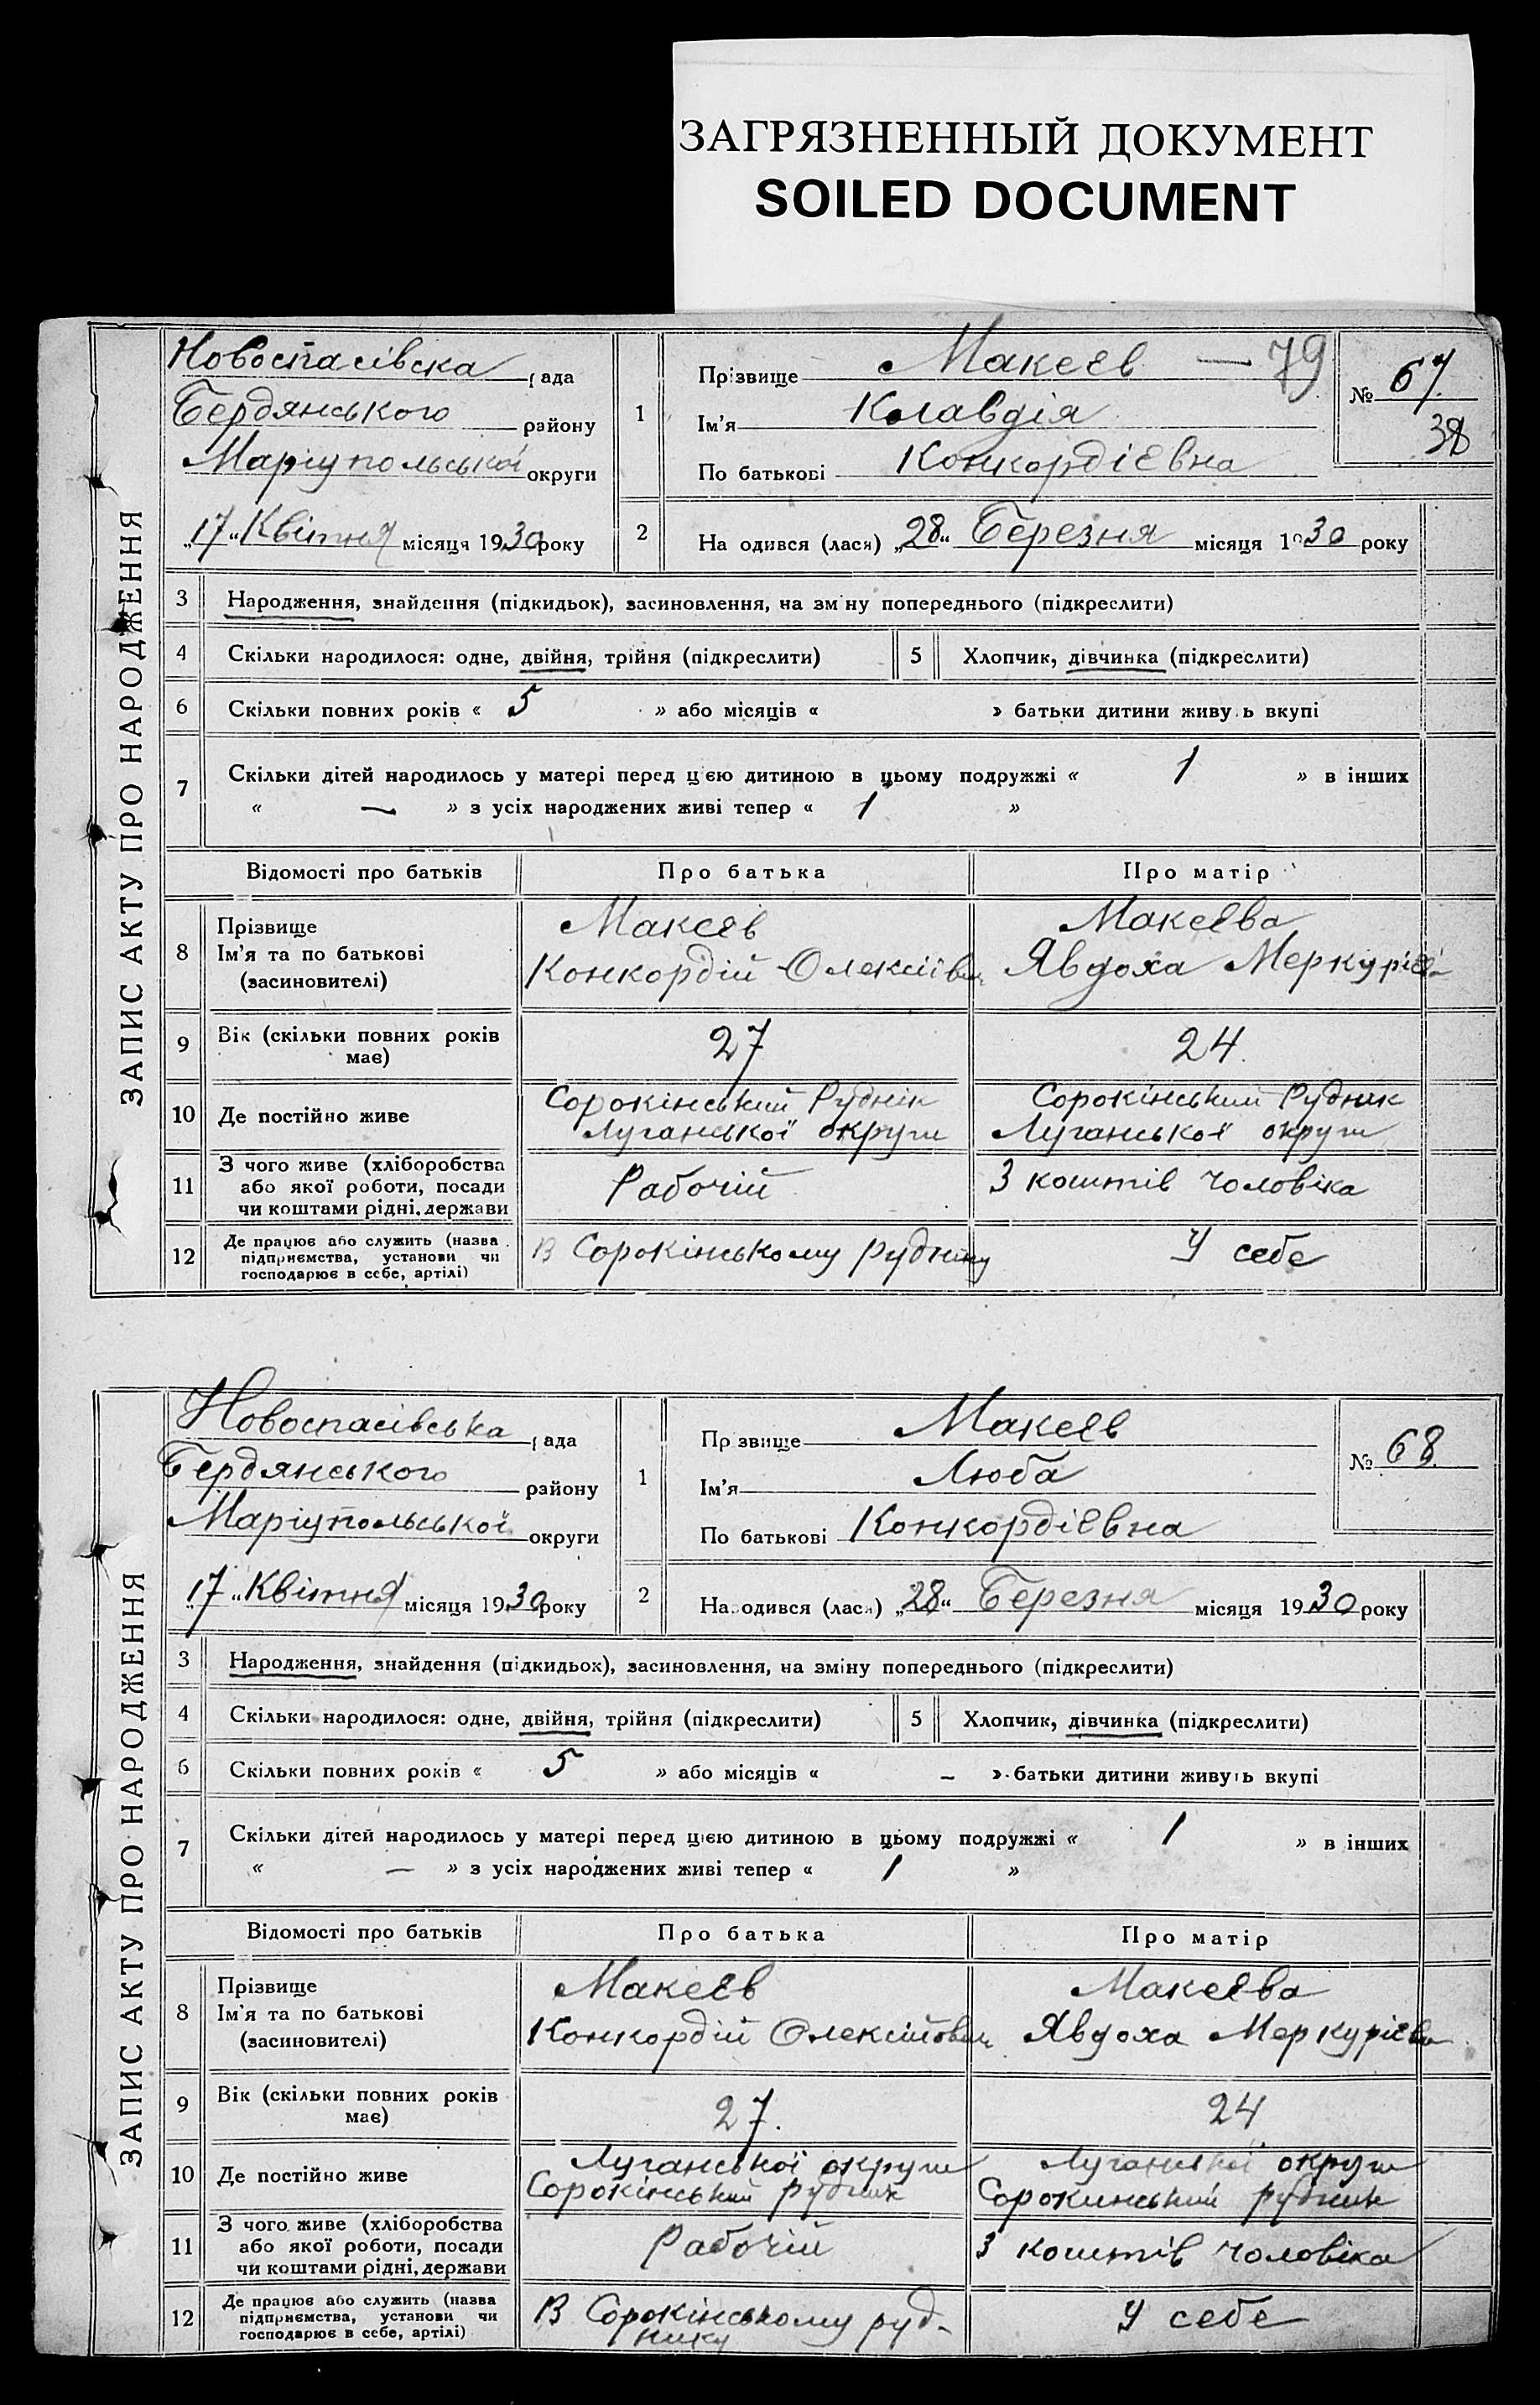 ЗАГРЯЗНЕННЫЙ ДОКУМЕНТ
SOILED DOCUMENT
ЗАПИС АКТУ ПРО НАРОДЖЕННЯ
Новоспасівска рада
Бердянського району
Маріупольської округи
„17“ Квітня місяця 1930 року
1
Прізвище Макєєв — 79
Ім'я Клавдія
По батькові Конкордієвна
№ 67
38
2
На одився (лася) „28“ Березня місяця 1930 року
3 Народження, знайдення (підкидьок), засиновлення, на зм ну попереднього (підкреслити)
4 Скільки народилося: одне, двійня, трійня (підкреслити)
5 Хлопчик, дівчинка (підкреслити)
6 Скільки повних років « 5 » або місяців « » батьки дитини живуть вкупі
7 Скільки дітей народилось у матері перед цією дитиною в цьому подружжі « 1 » в інших
« — » з усіх народжених живі тепер « 1 »
Відомості про батьків Про батька Про матір
8 Прізвище
Ім'я та по батькові
(засиновителі)
Макєєв
Конкордій Олексіїв
Макєєва
Явдоха Меркуріє
9 Вік (скільки повних років
має)
27
24.
10 Де постійно живе
Сорокінський Руднік
Луганської округи
Сорокінський Рудник
Луганської округи
11 З чого живе (хліборобства
або якої роботи, посади
чи коштами рідні, держави
Рабочій
З коштів чоловіка
12 Де працює або служить (назва
підприємства, установи чи
господарює в себе, артілі)
В Сорокінському руднику
У себе
ЗАПИС АКТУ ПРО НАРОДЖЕННЯ
Новоспасівська рада
Бердянського району
Маріупольської округи
„17“ Квітня місяця 1930 року
1
Пр звище Макєєв
Ім'я Люба
По батькові Конкордієвна
№ 68.
2
Народився (лася) „28“ Березня місяця 1930 року
3 Народження, знайдення (підкидьок), засиновлення, на зміну попереднього (підкреслити)
4 Скільки народилося: одне, двійня, трійня (підкреслити)
5 Хлопчик, дівчинка (підкреслити)
6 Скільки повних років « 5 » або місяців « — » батьки дитини живуть вкупі
7 Скільки дітей народилось у матері перед цією дитиною в цьому подружжі « 1 » в інших
« — » з усіх народжених живі тепер « 1 »
Відомості про батьків Про батька Про матір
8 Прізвище
Ім'я та по батькові
(засиновителі)
Макєєв
Конкордій Олексійович
Макєєва
Явдоха Меркурієва
9 Вік (скільки повних років
має)
27.
24
10 Де постійно живе
Луганської округи
Сорокінський рудник
Луганської округи
Сорокинський рудник
11 З чого живе (хліборобства
або якої роботи, посади
чи коштами рідні, держави
Рабочій
З коштів чоловіка
12 Де працює або служить (назва
підприємства, установи чи
господарює в себе, артілі)
В Сорокінському руд-
нику
У себе